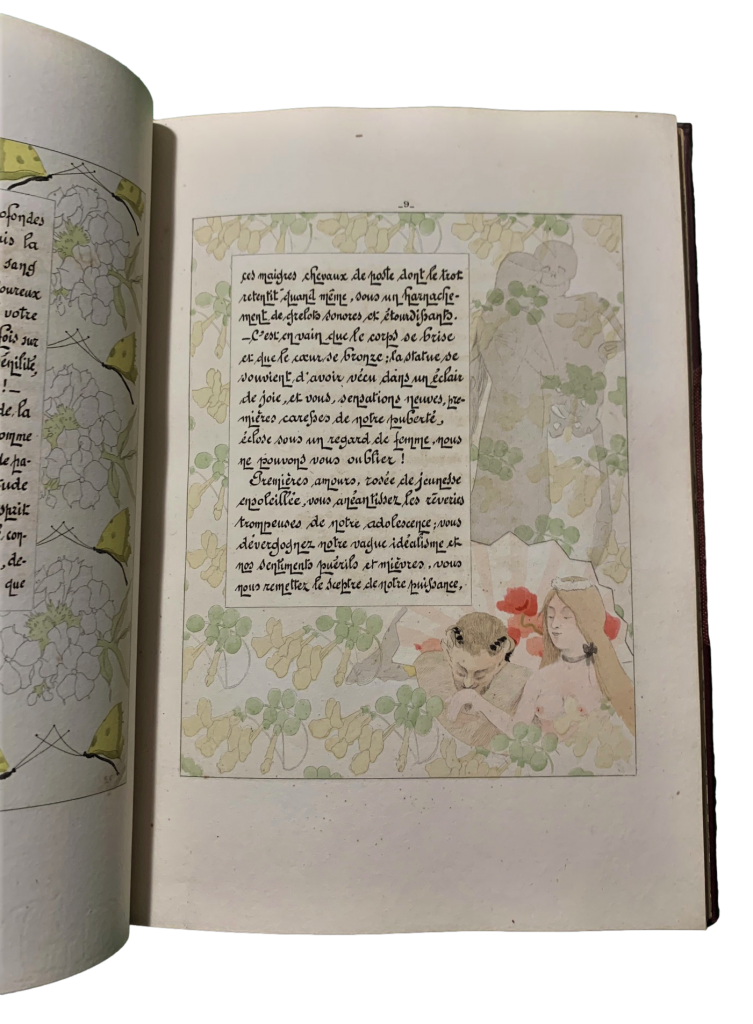 ofondes
ais la
sang
oureux
votre
fois sur
énilité,
! —
de la
omme
de pa-
tude
sprit
con-
, de-
que
_9_
ces maigres chevaux de poste dont le trot
retentit quand même, sous un harnache-
ment de grelots sonores et étourdissants.
— C'est en vain que le corps se brise
et que le cœur se bronze ; la statue se
souvient d'avoir vécu dans un éclair
de joie, et vous, sensations neuves, pre-
mières caresses de notre puberté,
éclose sous un regard de femme, nous
ne pouvons vous oublier !
Premières amours, rosée de jeunesse
ensoleillée, vous anéantissez les rêveries
trompeuses de notre adolescence ; vous
dévergognez notre vague idéalisme et
nos sentiments puérils et mièvres, vous
nous remettez le sceptre de notre puissance,